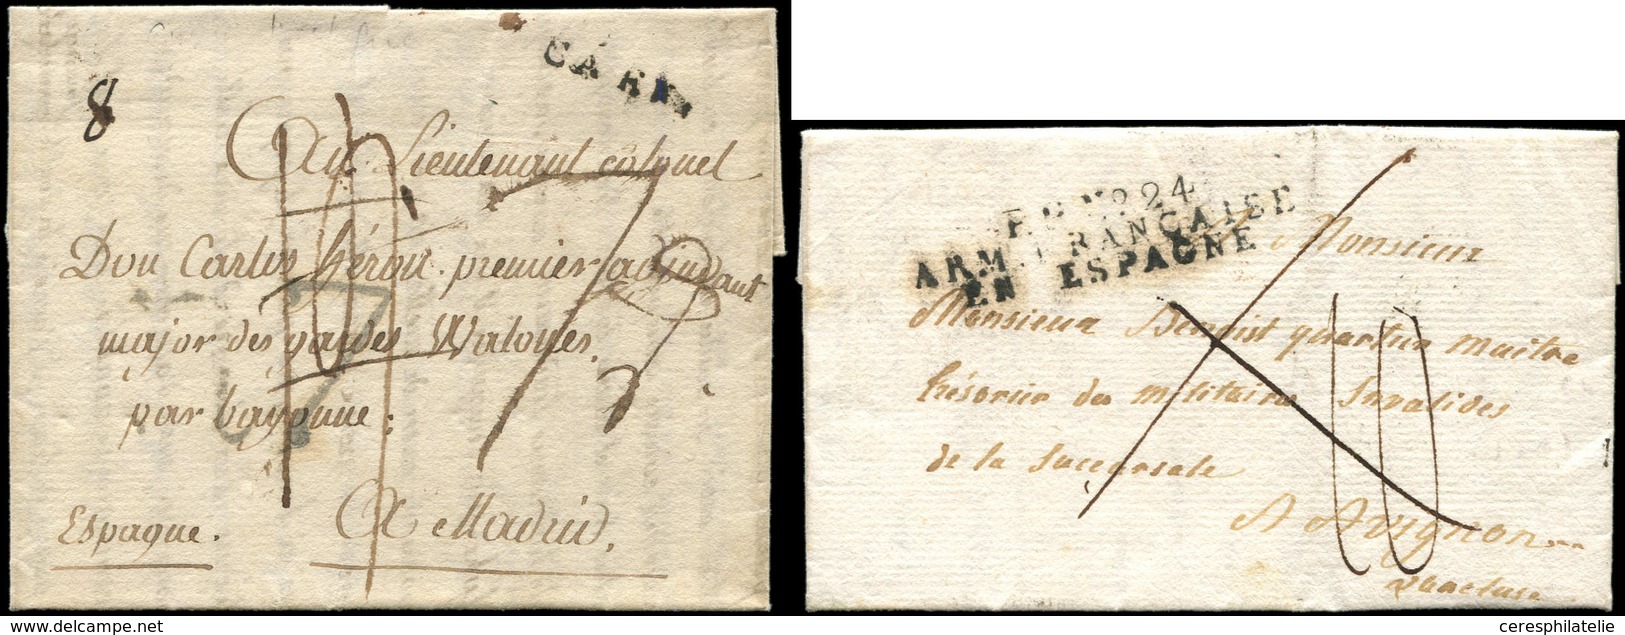 8
Au Lieutenant colonel
Don Carlos héron premier adjudant
major des gardes Walones.
par bayonne :
7
Espagne.
A Madrid.
No. 24
ARM. FRANÇAISE
EN ESPAGNE
Monsieur
Monsieur Benoist quartier maitre
trésorier des militaires Invalides
de la succursale
A Avignon
Vaucluse
10
www.delcampe.net
ceresphilatelie